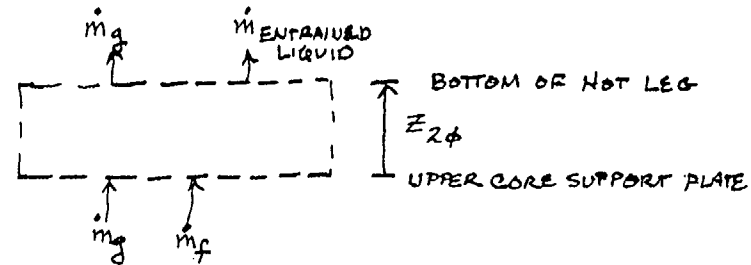 ṁg
ṁ ENTRAINED
LIQUID
BOTTOM OF HOT LEG
Z2ϕ
UPPER CORE SUPPORT PLATE
ṁg
ṁf